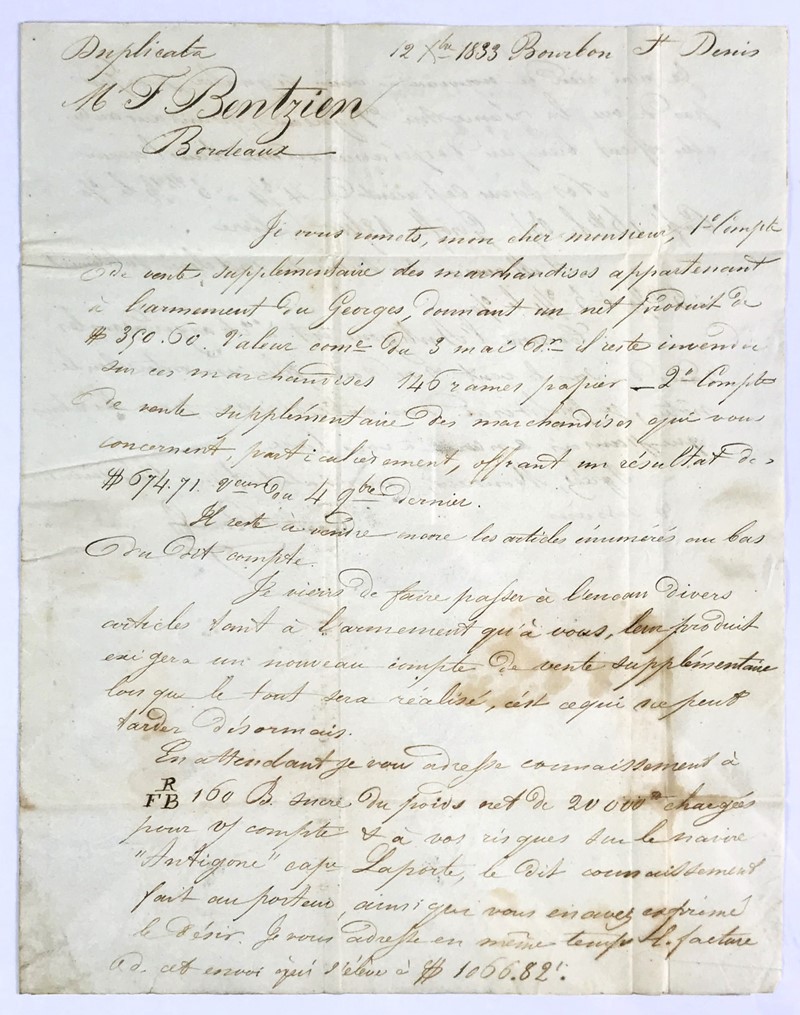 Duplicata 12 Xbre 1833 Bourbon St Denis
Mr F Bentzien
Bordeaux
Je vous remets, mon cher monsieur, 1° Compte
de vente supplémentaire des marchandises appartenant
à l'armement du Georges, donnant un net produit de
$ 350.60. Valeur come du 3 mai dr il reste invendu
sur ces marchandises 146 rames papier _ 2° Compte
de vente supplémentaire des marchandises qui vous
concernent particulierement, offrant un résultat de
$ 674.71. valeur du 4 9bre dernier.
Il reste à vendre encore les articles énumérés au bas
du dit compte.
Je viens de faire passer à l'encan divers
articles tant à l'armement qu'à vous, leur produit
exigera un nouveau compte de vente supplémentaire
lorsque le tout sera réalisé, c'est ce qui ne peut
tarder désormais.
En attendant je vous adresse connaissement à
R
FB 160 B. sucre du poids net de 20000 chargés
pour v/ compte & à vos risques sur le navire
"Antigone" cape Laporte, le dit connaissement
fait au porteur, ainsi que vous en avez exprimé
le désir. Je vous adresse en même temps facture
d. cet envoi qui s'élève à $ 1066.82.